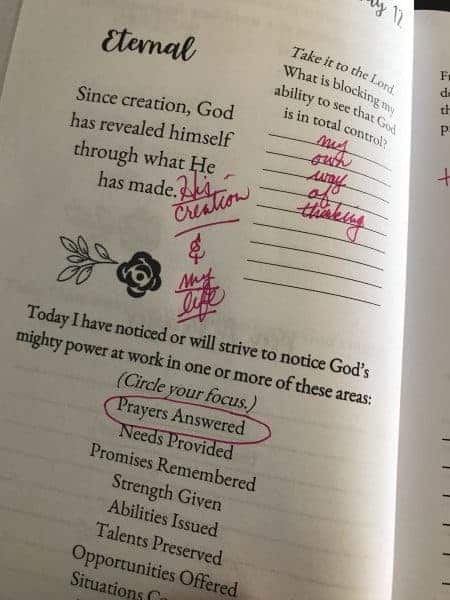 12
Eternal
Since creation, God
has revealed himself
through what He
has made.
His
creation
&
my
life
Take it to the Lord.
What is blocking my
ability to see that God
is in total control?
my
own
way
of
thinking
Today I have noticed or will strive to notice God's
mighty power at work in one or more of these areas:
(Circle your focus.)
Prayers Answered
Needs Provided
Promises Remembered
Strength Given
Abilities Issued
Talents Preserved
Opportunities Offered
Situations